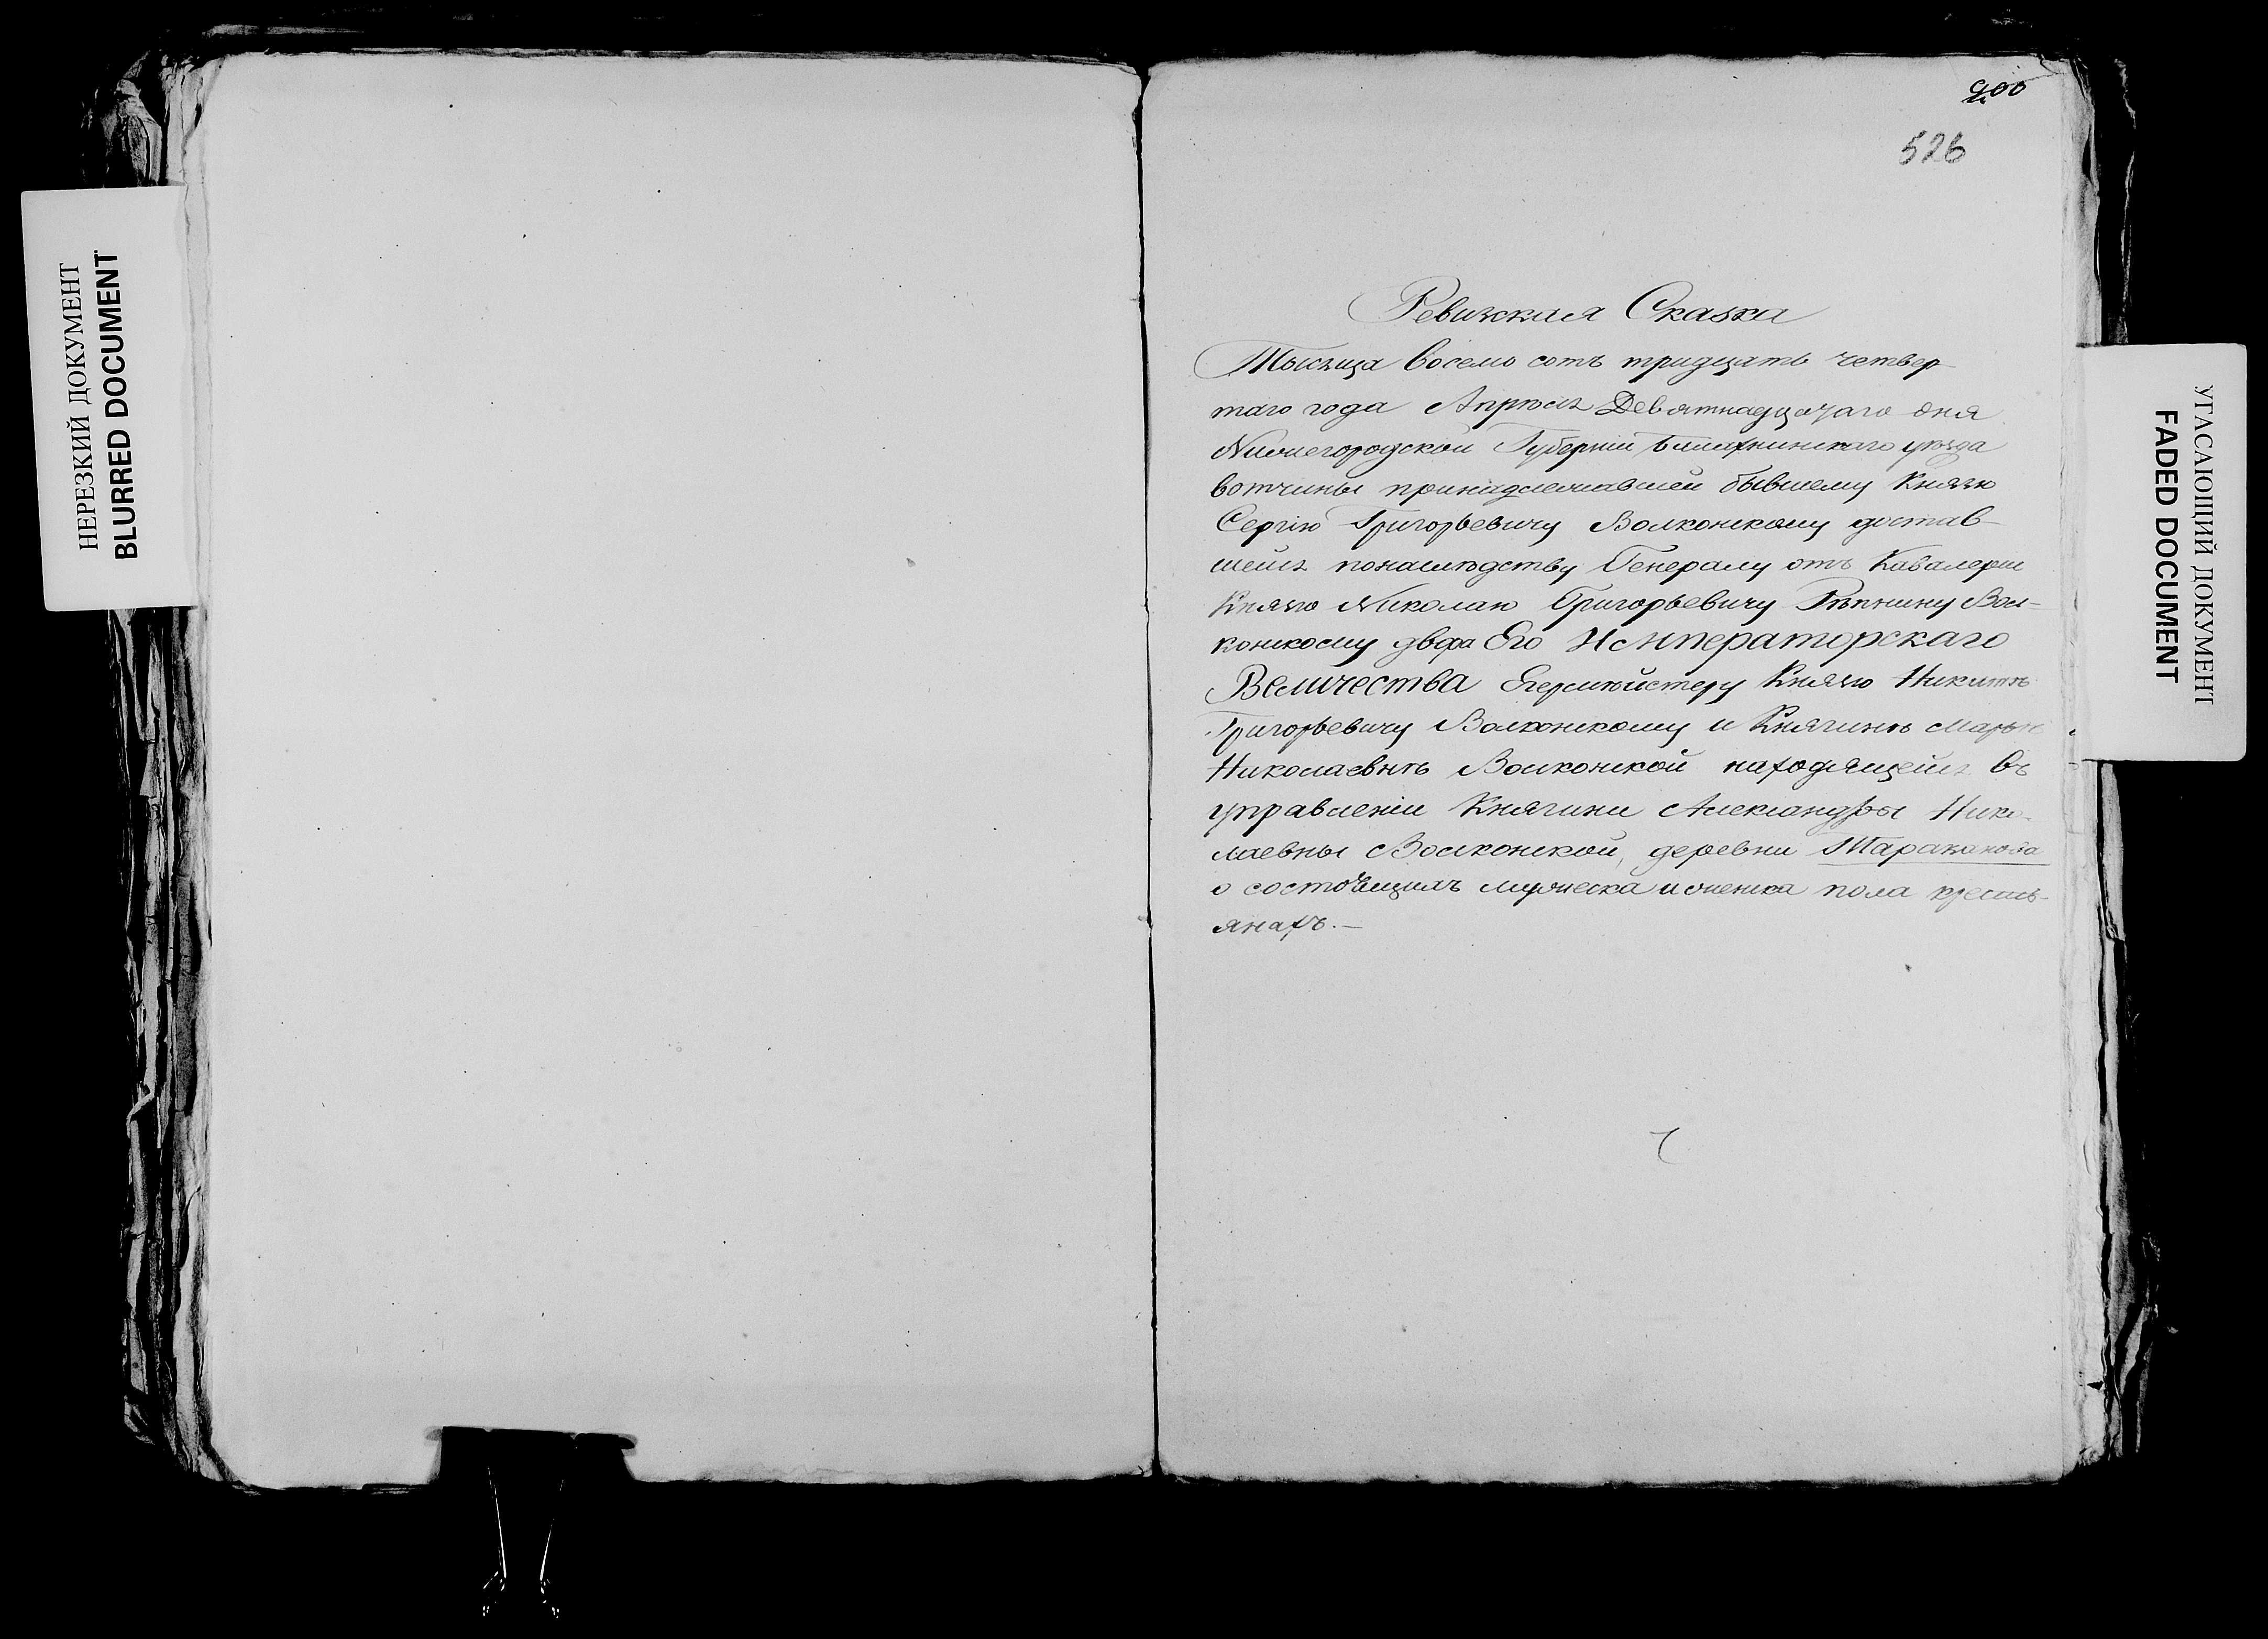 НЕРЕЗКИЙ ДОКУМЕНТ
BLURRED DOCUMENT
526
Ревизская Сказка
Тысяща восемь сотъ тридцать четвер-
таго года Апрѣля Девятнадцатаго дня
Нижегородской Губерніи Балахнинскаго уѣзда
вотчины принадлежавшей бывшему Князю
Сергію Григорьевичу Волконскому достав-
шейся понаследству Генералу отъ Кавалеріи
Князю Николаю Григорьевичу Рѣпнину Вол-
конскому двора Его Императорскаго
Величества Егермейстеру Князю Никитѣ
Григорьевичу Волконскому и Княгинѣ Марьѣ
Николаевнѣ Волконской находящейся въ
управленіи Княгини Александры Нико-
лаевны Волконской, деревни Тараканова
о состоящихъ мужеска и женска пола кресть-
янахъ.—
УГАСАЮЩИЙ ДОКУМЕНТ
FADED DOCUMENT